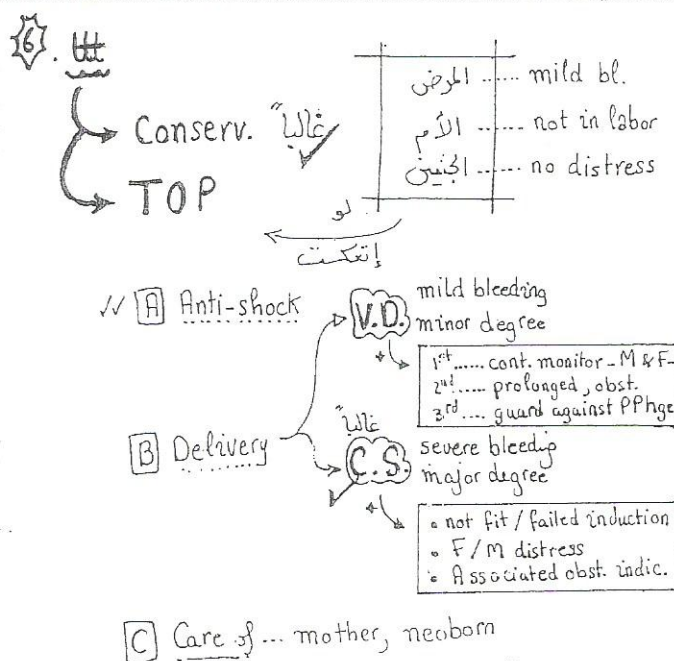 6. ttt
Conserv. غالباً
TOP
المرض ...... mild bl.
الأم ...... not in labor
الجنين ...... no distress
لو
إتعكست
A Anti-shock
B Delivery
V.D.
mild bleeding
minor degree
1st ...... cont. monitor - M & F -
2nd ..... prolonged, obst.
3rd .... guard against PPhge
غالباً
C.S.
severe bleedig
major degree
• not fit / failed induction
• F/M distress
• Associated obst. indic.
C Care of ... mother, neoborn